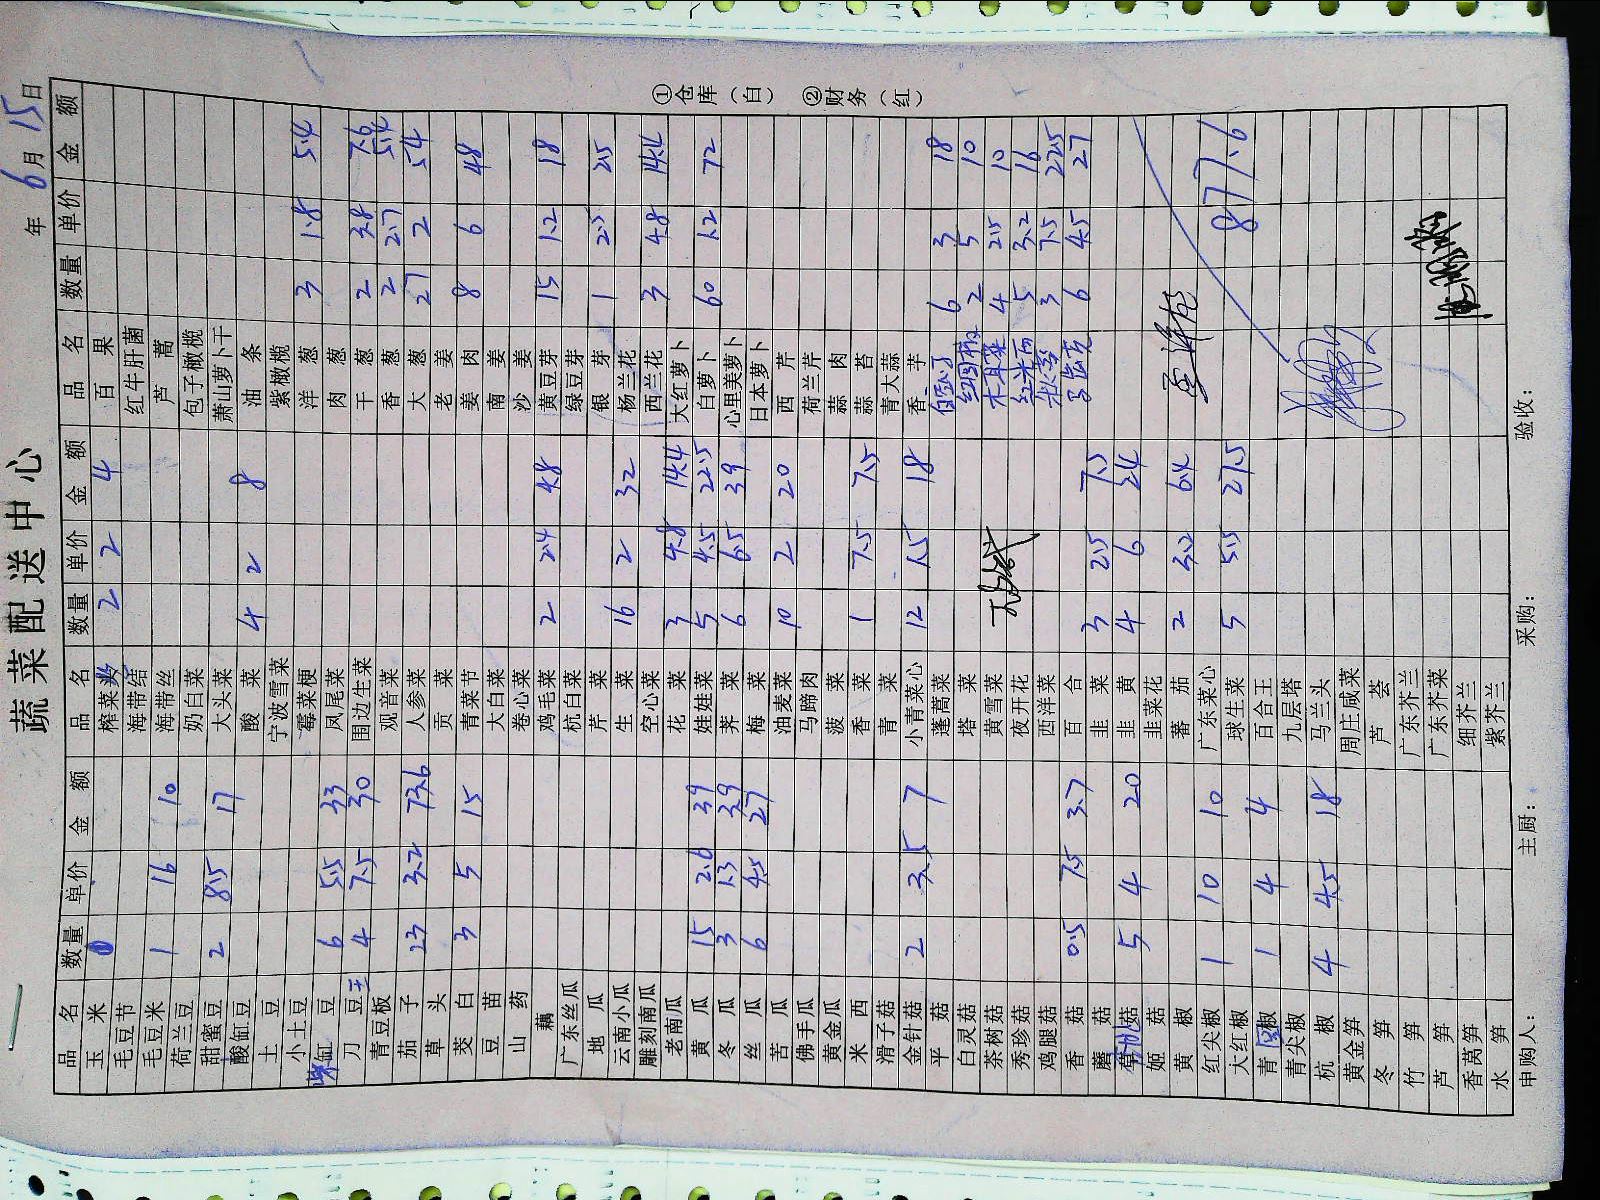 蔬菜配送中心
年 6月 15日
品名 数量 单价 金额 品名 数量 单价 金额 品名 数量 单价 金额
玉米 榨菜 2 2 4 百果
毛豆节 海带结 红牛肝菌
毛豆米 1 16 10 海带丝 芦蒿
荷兰豆 奶白菜 包子橄榄
甜蜜豆 2 8.5 17 大头菜 萧山萝卜干
酸缸豆 酸菜 4 2 8 油条
土豆 宁波雪菜 紫橄榄
小土豆 霉菜梗 洋葱 3 1.8 5.4
缸豆 6 5.5 33 凤尾菜 肉葱
刀豆 4 7.5 30 围边生菜 干葱 2 3.8 7.6
青豆板 观音菜 香葱 2 2.7 5.4
茄子 23 3.2 73.6 人参菜 大葱 27 2 54
草头 贡菜 老姜
茭白 3 5 15 青菜节 姜肉 8 6 48
豆苗 大白菜 南姜
山药 卷心菜 沙姜
藕 鸡毛菜 2 2.4 4.8 黄豆芽 15 1.2 18
广东丝瓜 杭白菜 绿豆芽
地瓜 芹菜 银芽 1 2.5 2.5
云南小瓜 生菜 16 2 32 杨兰花
雕刻南瓜 空心菜 西兰花 3 4.8 14.4
老南瓜 花菜 3 4.8 14.4 大红萝卜
黄瓜 15 2.6 39 娃娃菜 5 4.5 22.5 白萝卜 60 1.2 72
冬瓜 3 1.3 3.9 荠菜 6 6.5 39 心里美萝卜
丝瓜 6 4.5 27 梅菜 日本萝卜
苦瓜 油麦菜 10 2 20 西芹
佛手瓜 马蹄肉 荷兰芹
黄金瓜 菠菜 蒜肉
米西 香菜 1 7.5 7.5 蒜苔
滑子菇 青菜 青大蒜
金针菇 2 3.5 7 小青菜心 12 1.5 18 香芋
平菇 蓬蒿菜 6 3 18
白灵菇 塔菜 2 5 10
茶树菇 黄雪菜 木耳菜 4 2.5 10
秀珍菇 夜开花 5 3.2 16
鸡腿菇 西洋菜 秋葵 3 7.5 22.5
香菇 0.5 7.5 3.7 百合 6 4.5 27
蘑菇 韭菜 3 2.5 7.5
菇 5 4 20 韭黄 4 6 24
姬菇 韭菜花
黄椒 蕃茄 2 3.2 6.4
红尖椒 1 10 10 广东菜心 877.6
大红椒 球生菜 5 5.5 27.5
青圆椒 1 4 4 百合王
青尖椒 九层塔
杭椒 4 4.5 18 马兰头
黄金笋 周庄咸菜
冬笋 芦荟
竹笋 广东芥兰
芦笋 广东芥菜
香莴笋 细芥兰
水笋 紫芥兰
申购人： 主厨： 采购： 验收：
①仓库（白） ②财务（红）